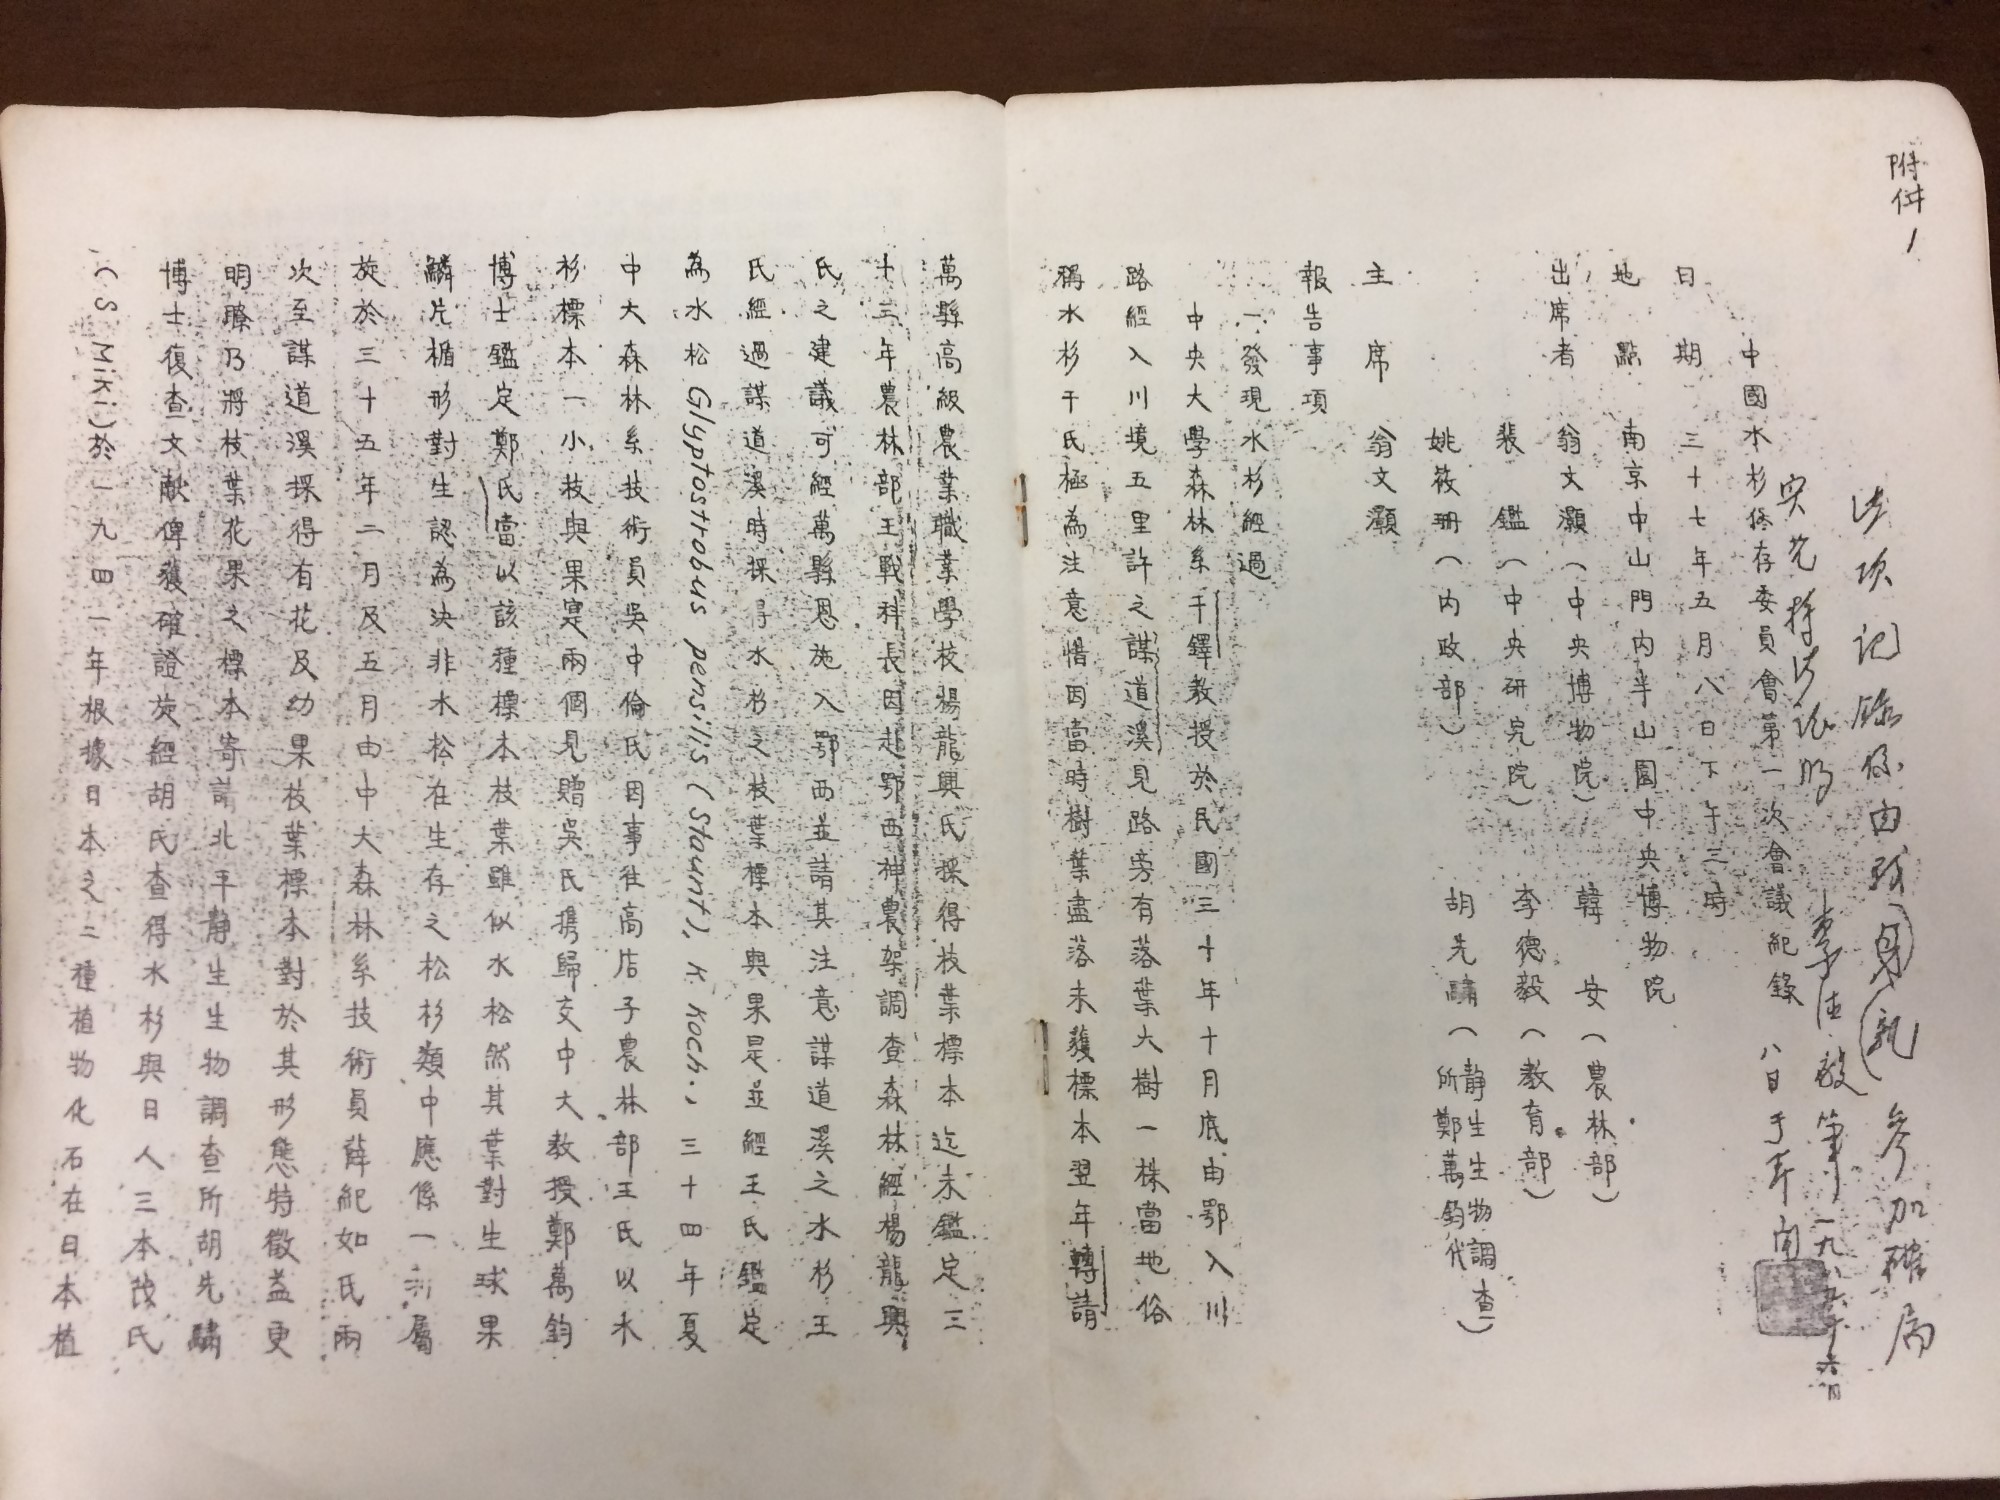 附件1
此項記錄係由我(身)(親)參加確屬
李德毅筆一九八
八日于南
中國水杉保存委員會第一次會議紀錄
日期 三十七年五月八日下午三時
地點 南京中山門內半山園中央博物院
出席者 翁文灝(中央博物院) 韓 安(農林部)
裴 鑑(中央研究院) 李德毅(教育部)
姚筱珊(內政部) 胡先驌(靜生生物調查所鄭萬鈞代)
主席 翁文灝
報告事項
一、發現水杉經過
中央大學森林系干鐸教授於民國三十年十月底由鄂入川
路經入川境五里許之謀道溪見路旁有落葉大樹一株當地俗
稱水杉干氏極為注意惜因當時樹葉盡落未獲標本翌年轉請
萬縣高級農業職業學校楊龍興氏採得枝葉標本迄未鑑定三
十三年農林部王戰科長因赴鄂西神農架調查森林經楊龍興
氏之建議可經萬縣恩施入鄂西並請其注意謀道溪之水杉王
氏經過謀道溪時採得水杉之枝葉標本與果是並經王氏鑑定
為水松 Glyptostrobus pensilis (Staunt), K. Koch. 三十四年夏
中大森林系技術員吳中倫氏因事往高店子農林部王氏以水
杉標本一小枝與果寔兩個見贈吳氏携歸交中大教授鄭萬鈞
博士鑑定鄭氏當以該種標本枝葉雖似水松然其葉對生球果
鱗片楯形對生認為決非水松在生存之松杉類中應係一新屬
旋於三十五年二月及五月由中大森林系技術員薛紀如氏兩
次至謀道溪採得有花及幼果枝葉標本對於其形態特徵益更
明瞭乃將枝葉花果之標本寄請北平靜生生物調查所胡先驌
博士復查文献俾獲確證旋經胡氏查得水杉與日人三本茂氏
(S. Miki)於一九四一年根據日本之二種植物化石在日本植